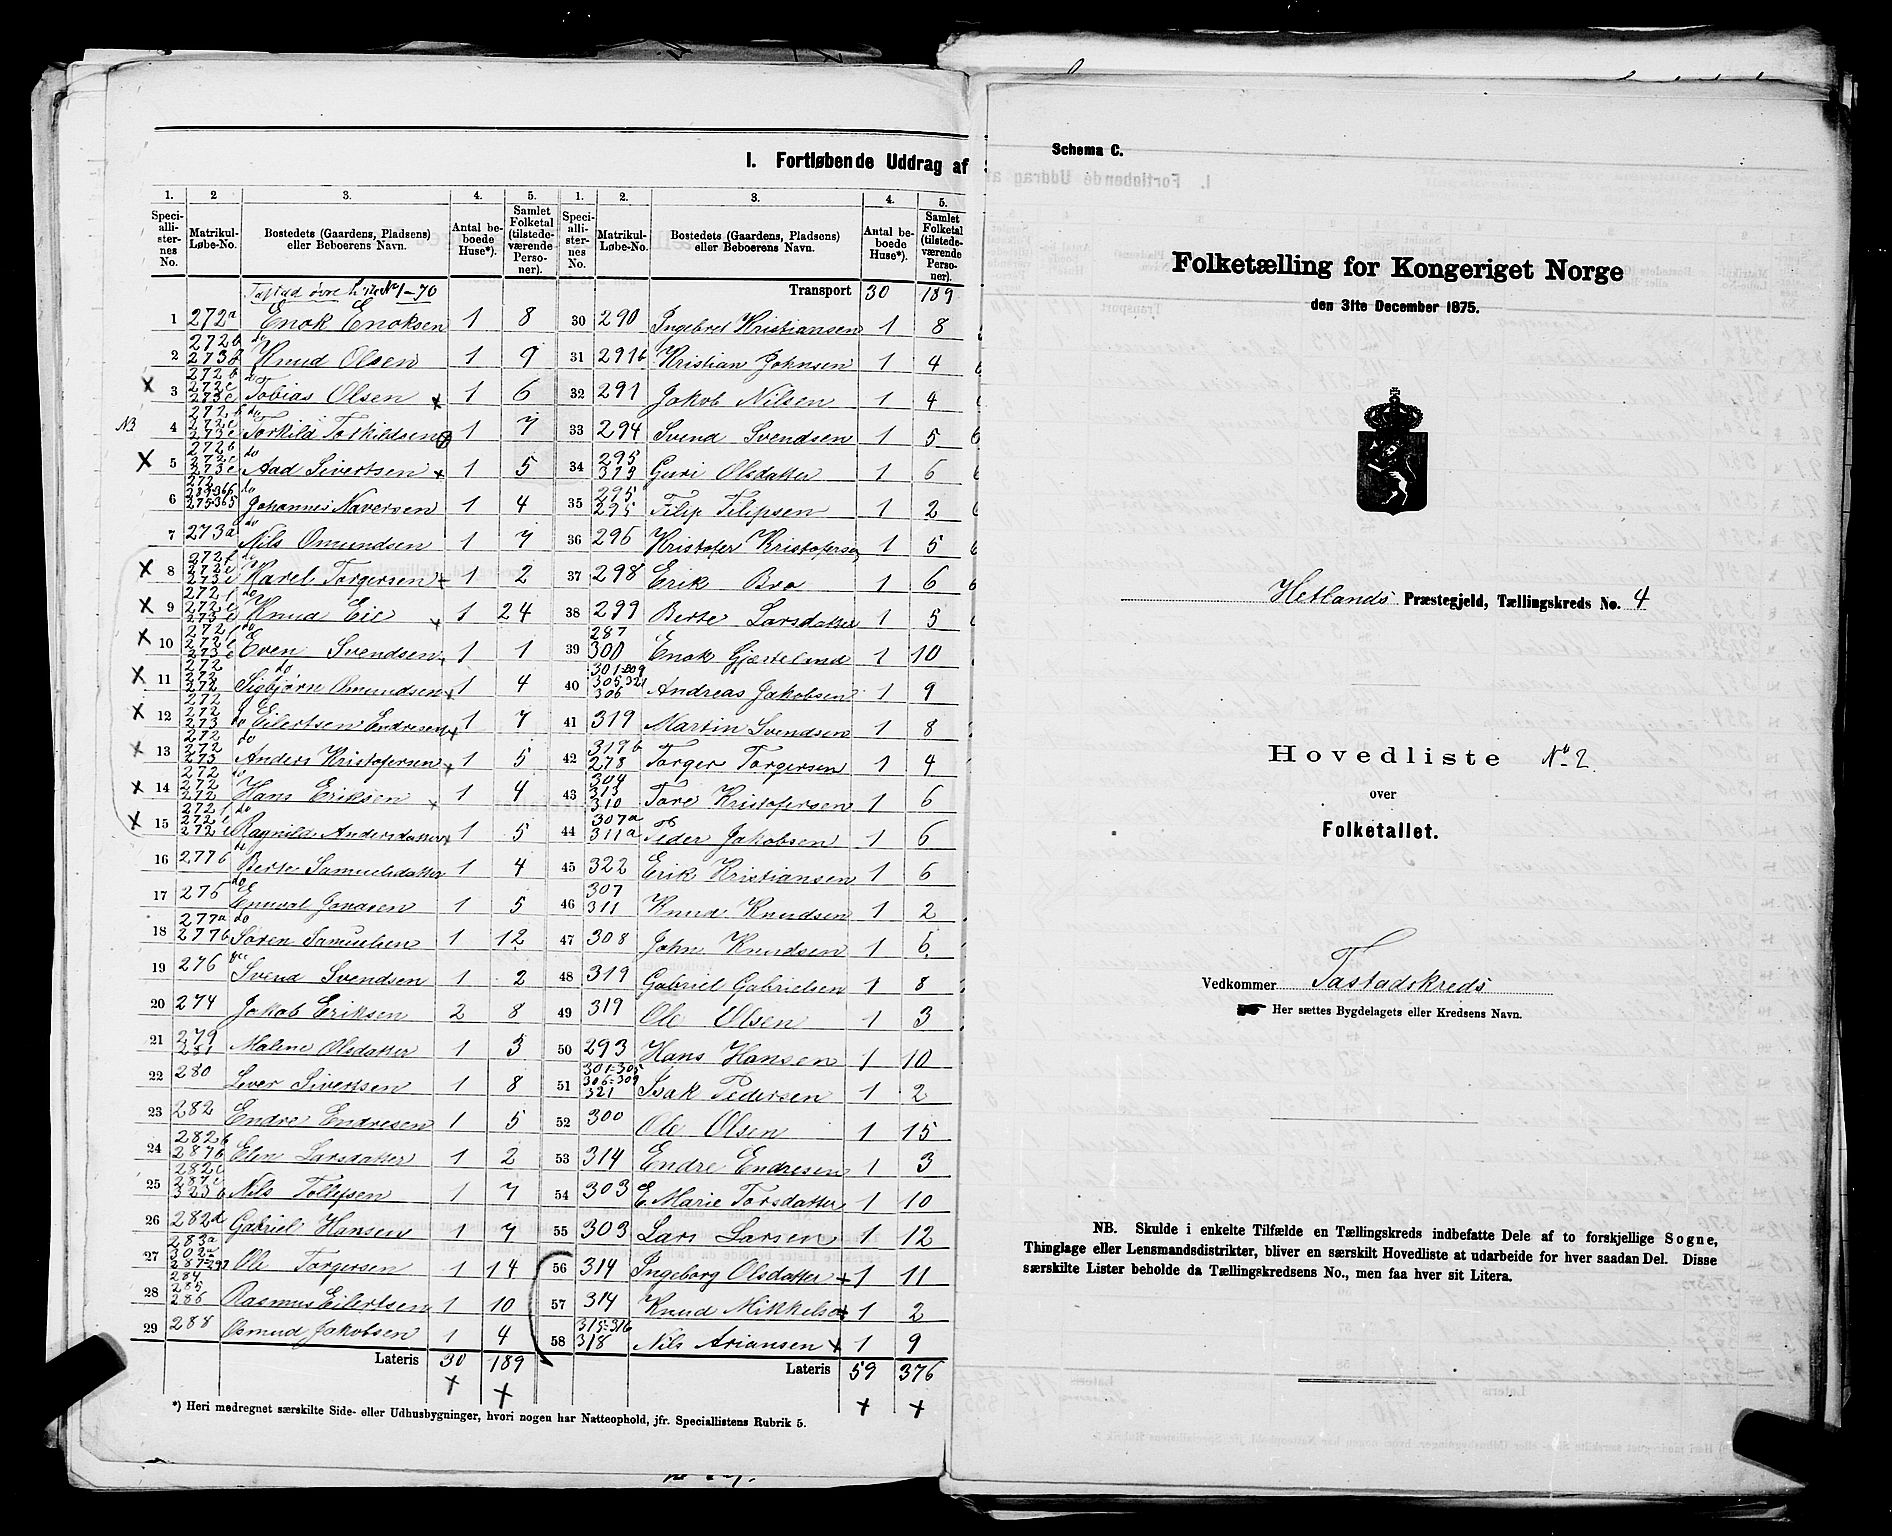 I. Fortløbende Uddrag af
1. 2 3. 4. 5. 1. 2. 3. 4. 5.
Speciallisternes No. Matrikul-Løbe-No. Bostedets (Gaardens, Pladsens) eller Beboerens Navn. Antal beboede Huse*). Samlet Folketal (tilstedeværende Personer). Speciallisternes No. Matrikul-Løbe-No. Bostedets (Gaardens, Pladsens) eller Beboerens Navn. Antal beboede Huse*). Samlet Folketal (tilstedeværende Personer).
Tastad øvre No 1-70
1 272a Enok Enoksen 1 8
2 272b do Knud Olsen 1 9
X 3 272b 272c 273c do Tobias Olsen x 1 6
NB 4 272c 273c do Torkild Torkildsen 1 7
X 5 272b 272c 273c do Aad Sivertsen x 1 5
6 272 do Johannes Naversen 1 4
7 273a do Nils Omundsen 1 7
X 8 272f 272c 273c do Karel Torgersen x 1 2
X 9 272f 272c 273c do Knud Eie x 1 24
X 10 272f 272c 273c do Even Svendsen 1 1
X 11 272 272 do Sigbjørn Omundsen x 1 4
X 12 272 272 273 do Eilertsen Endresen x 1 7
X 13 272 272 273 do Anders Kristofersen x 1 5
X 14 272 272 272 do Hans Eriksen x 1 4
X 15 272f 272c 272c do Ragnild Andersdatter x 1 5
16 277b do Berte Samuelsdatter 1 4
17 276 do 1 5
18 277a 277b do Søren Samuelsen 1 12
19 276 do Svend Svendsen 1 2
20 274 Jakob Eriksen 2 8
21 279 281 Malene Olsdatter 1 3
22 280 Sever Sivertsen 1 8
23 282 Endre Endresen 1 5
24 282b 287b Elen Larsdatter 1 2
25 282c 287c 323b Nils Tollefsen 1 7
26 282d Gabriel Hansen 1 7
27 283a 302a 287-297 Ole Torgersen 1 14
28 284 285 286 Rasmus Eilertsen 1 10
29 288 Osmud Jakobsen 1 4
Lateris 30 189
Transport 30 189
30 290 Ingebret Kristiansen 1 8
31 291b Kristian Johnsen 1 4
32 291 Jakob Nilsen 1 4
33 294 Svend Svendsen 1 5
34 295 313 Guri Olsdatter 1 6
35 295 295 Filip Filipsen 1 2
36 296 Kristofer Kristofersen 1 5
37 298 Erik Bro 1 6
38 299 Berte Larsdatter 1 5
39 287 300 Enok Gjerteland 1 10
40 301-309 305 321 306 Andreas Jakobsen 1 9
41 319 Martin Svendsen 1 8
42 319b 278 Torger Torgersen 1 4
43 304 313 310 Tore Kristofersen 1 6
44 307a 311a Peder Jakobsen 1 6
45 322 Erik Kristiansen 1 6
46 307 311 Knud Knudsen 1 2
47 308 John Knudsen 1 6
48 319 Gabriel Gabrielsen 1 8
49 319 Ole Olsen 1 3
50 293 Hans Hansen 1 10
51 301-305 306-309 321 Isak Pedersen 1 2
52 300 Ole Olsen 1 15
53 314 Endre Endresen 1 3
54 303 E Marie Torsdatter 1 10
55 303 Lars Larsen 1 12
56 314 Ingeborg Olsdatter x 1 11
57 314 Knud Mikkelsen x 1 2
58 315-316 318 Nils Ariansen x 1 9
Lateris 59 376
*) Heri medregnet særskilte Side- eller Udhusbygninger, hvori nogen har Natteophold, jfr. Speciallistens Rubrik 5.
Schema C.
Folketælling for Kongeriget Norge
den 31te December 1875.
Hetlands Præstegjeld, Tællingskreds No. 4
Hovedliste No 2.
over
Folketallet.
Vedkommer Tastadskreds
Her sættes Bygdelagets eller Kredsens Navn.
NB. Skulde i enkelte Tilfælde en Tællingskreds indbefatte Dele af to forskjellige Sogne,
Thinglage eller Lensmandsdistrikter, bliver en særskilt Hovedliste at udarbeide for hver saadan Del. Disse
særskilte Lister beholde da Tællingskredsens No., men faa hver sit Litera.